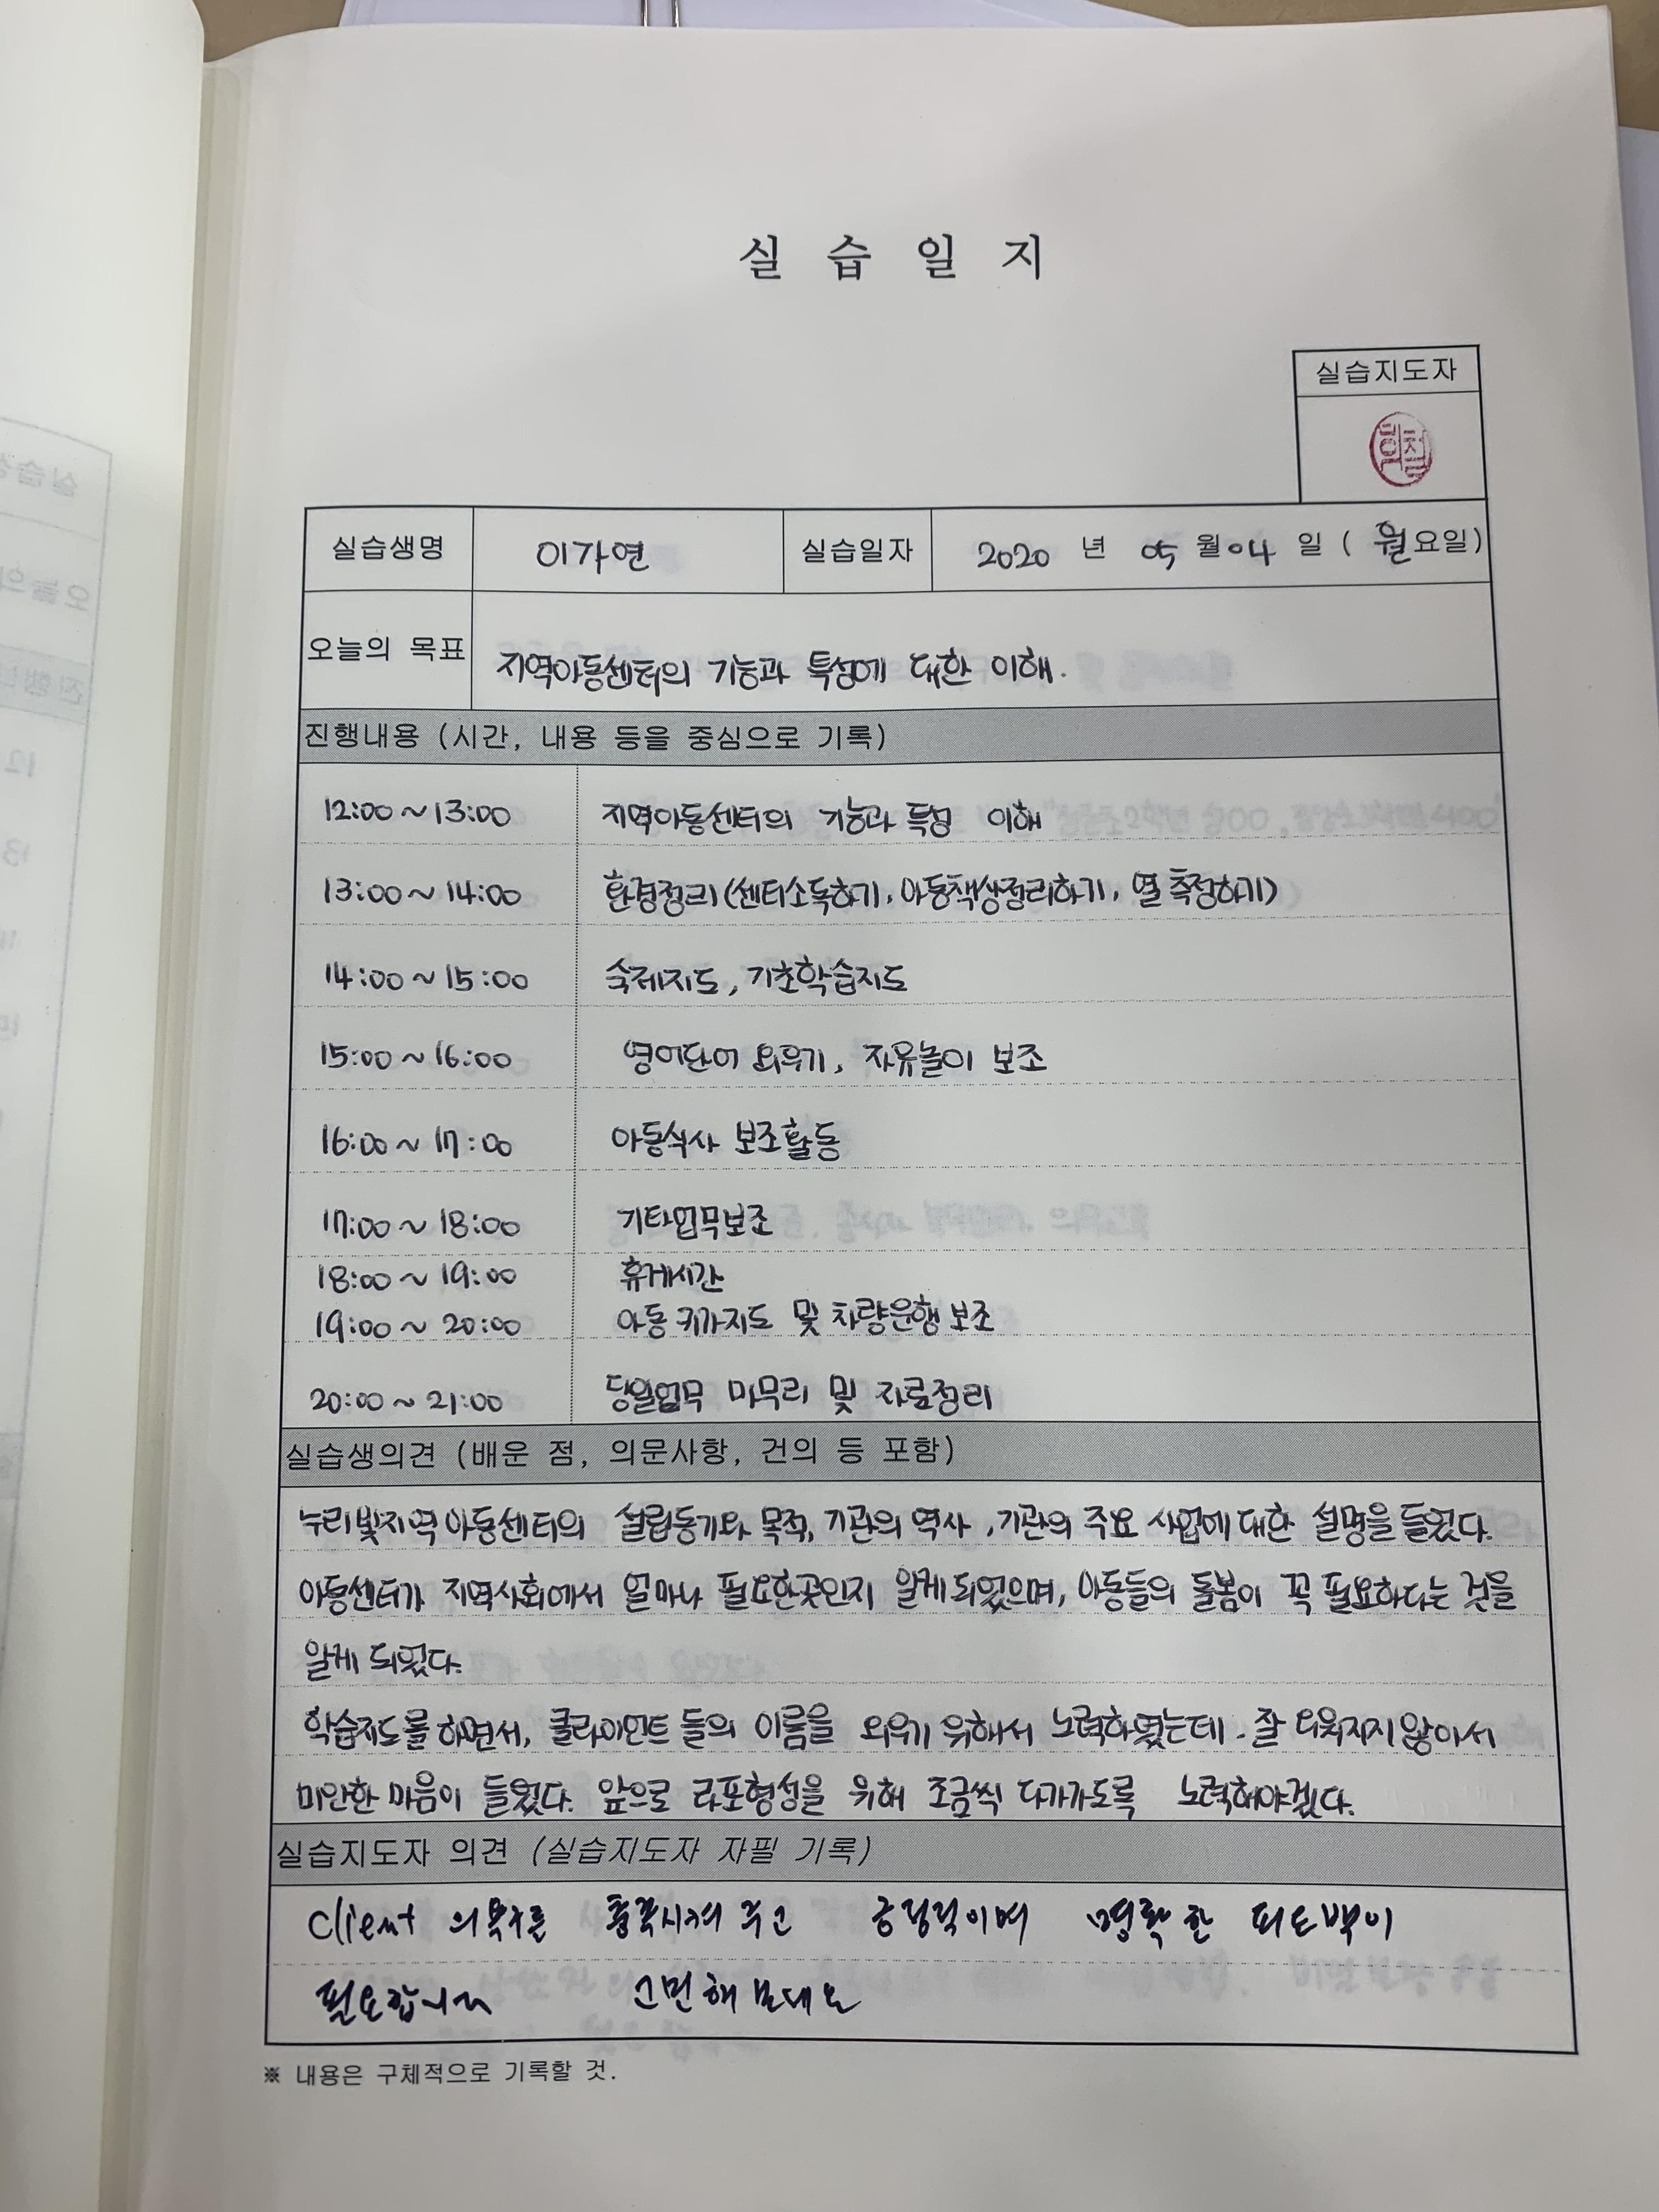 실습일지
실습지도자
실습생명 이가연 실습일자 2020 년 05 월 04 일 ( 월요일)
오늘의 목표 지역아동센터의 기능과 특성에 대한 이해.
진행내용 (시간, 내용 등을 중심으로 기록)
12:00 ~ 13:00 지역아동센터의 기능과 특성 이해
13:00 ~ 14:00 환경정리(센터소독하기, 아동책상정리하기, 열 측정하기)
14:00 ~ 15:00 숙제지도, 기초학습지도
15:00 ~ 16:00 영어단어 외우기, 자유놀이 보조
16:00 ~ 17:00 아동식사 보조활동
17:00 ~ 18:00 기타업무보조
18:00 ~ 19:00 휴게시간
19:00 ~ 20:00 아동 귀가지도 및 차량운행 보조
20:00 ~ 21:00 당일업무 마무리 및 자료정리
실습생의견 (배운 점, 의문사항, 건의 등 포함)
누리빛지역아동센터의 설립동기와 목적, 기관의 역사, 기관의 주요 사업에 대한 설명을 들었다.
아동센터가 지역사회에서 얼마나 필요한곳인지 알게 되었으며, 아동들의 돌봄이 꼭 필요하다는 것을
알게 되었다.
학습지도를 하면서, 클라이언트 들의 이름을 외우기 위해서 노력하였는데. 잘 외워지지 않아서
미안한 마음이 들었다. 앞으로 라포형성을 위해 조금씩 다가가도록 노력해야겠다.
실습지도자 의견 (실습지도자 자필 기록)
Client 의 욕구를 충족시켜 주고 긍정적이며 명확한 피드백이
필요합니다 고민해 보세요
※ 내용은 구체적으로 기록할 것.